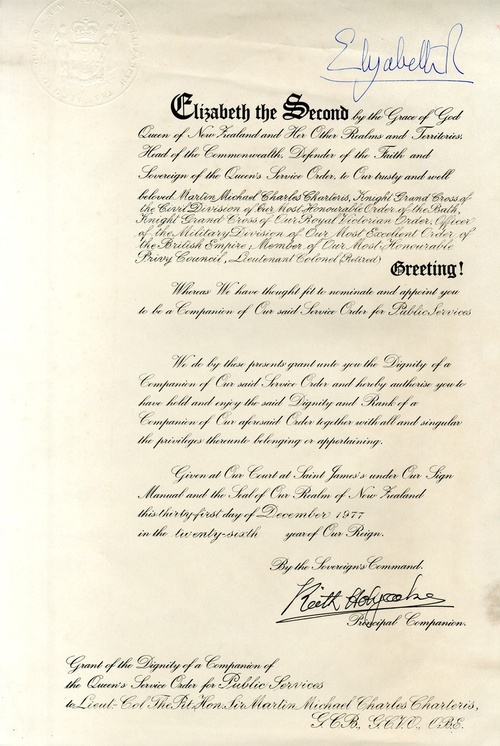 Elizabeth R
Elizabeth the Second by the Grace of God
Queen of New Zealand and Her Other Realms and Territories,
Head of the Commonwealth, Defender of the Faith and
Sovereign of the Queen's Service Order, to Our trusty and well
beloved Martin Michael Charles Charteris, Knight Grand Cross of
the Civil Division of Our Most Honourable Order of the Bath,
Knight Grand Cross of Our Royal Victorian Order, Officer
of the Military Division of Our Most Excellent Order of
the British Empire, Member of Our Most Honourable
Privy Council, Lieutenant Colonel (Retired)
Greeting!
Whereas We have thought fit to nominate and appoint you
to be a Companion of Our said Service Order for Public Services
We do by these presents grant unto you the Dignity of a
Companion of Our said Service Order and hereby authorise you to
have hold and enjoy the said Dignity and Rank of a
Companion of Our aforesaid Order together with all and singular
the privileges thereunto belonging or appertaining.
Given at Our Court at Saint James's under Our Sign
Manual and the Seal of Our Realm of New Zealand
this thirty-first day of December 1977
in the twenty-sixth year of Our Reign.
By the Sovereign's Command.
Keith Holyoake
Principal Companion.
Grant of the Dignity of a Companion of
the Queen's Service Order for Public Services
to Lieut-Col The Rt. Hon. Sir Martin Michael Charles Charteris,
G.C.B., G.C.V.O., O.B.E.